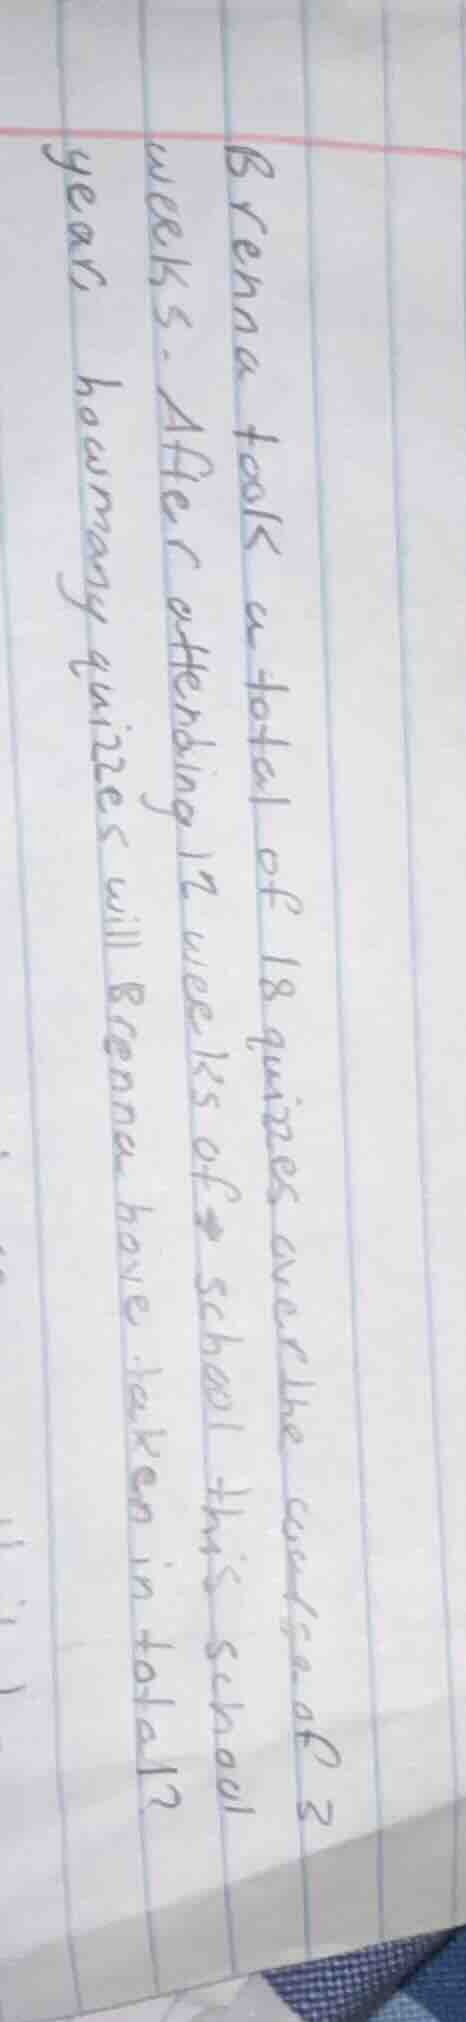 Brenna took a total of 18 quizzes over the course of 3
weeks. After attending 12 weeks of school this school
year, how many quizzes will Brenna have taken in total?